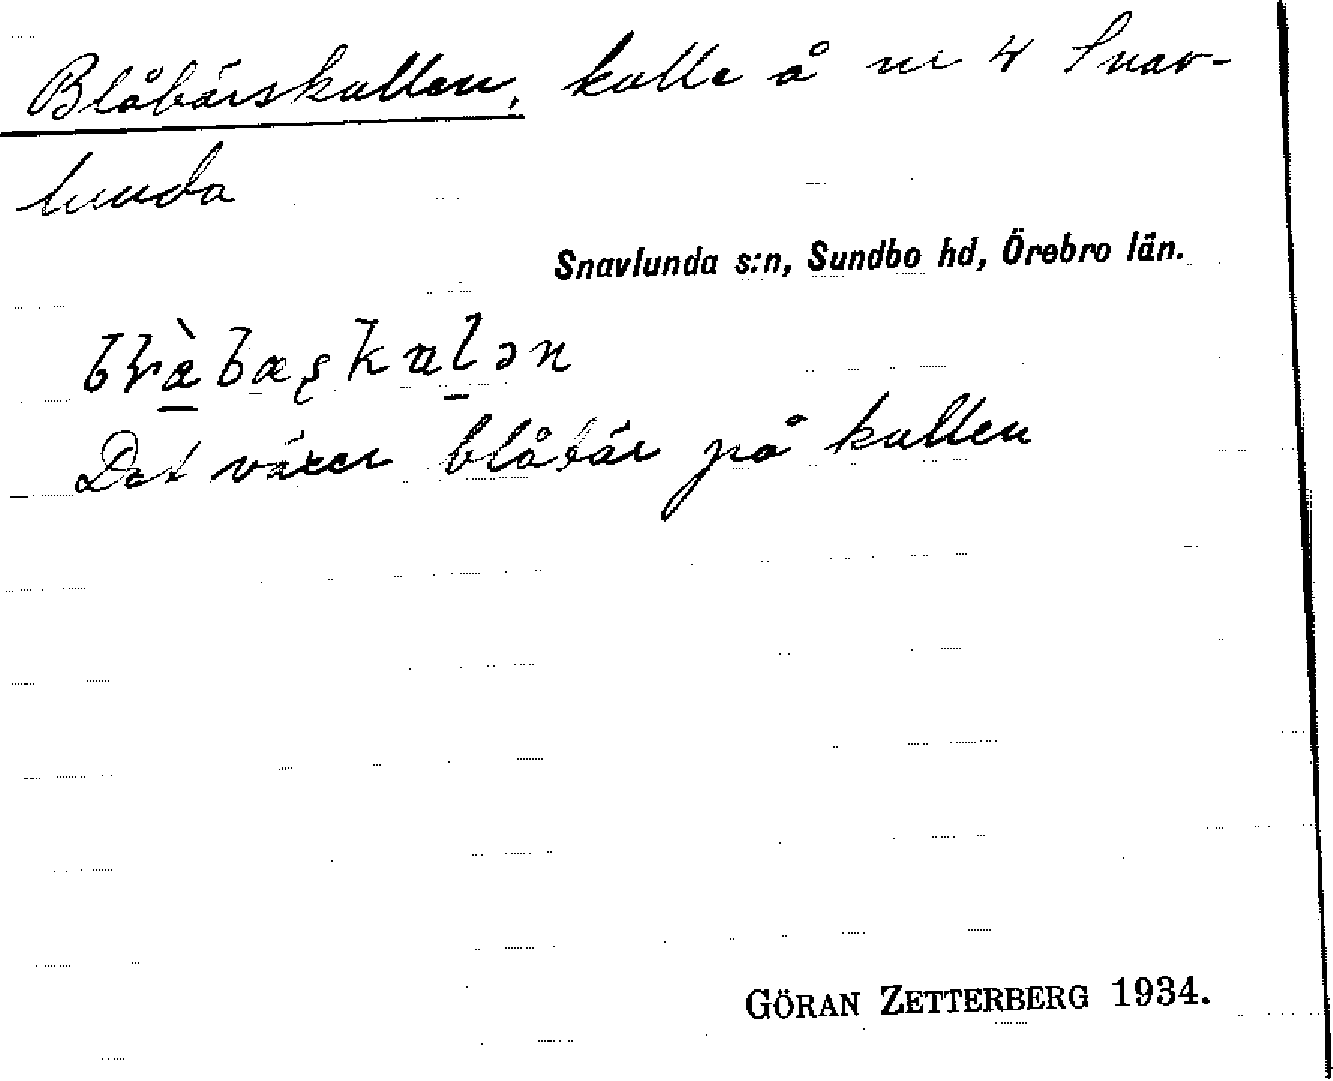 Blåbärskullen, kulle å nr 4 Snav-
lunda
Snavlunda s:n, Sundbo hd, Örebro län.
Det växer blåbär på kullen
GÖRAN ZETTERBERG 1934.